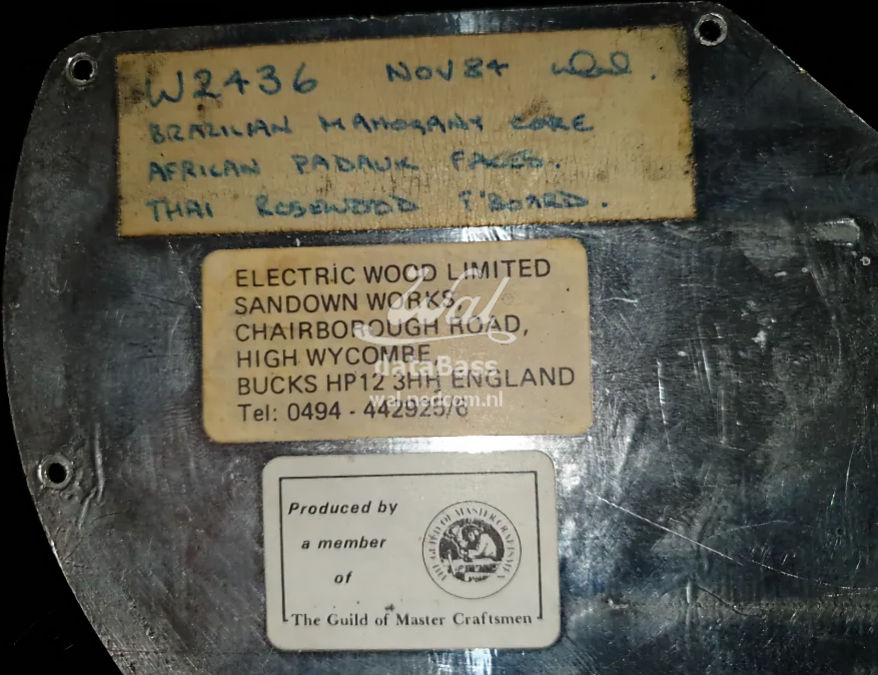 W2436 NOV 84 Wal.
BRAZILIAN MAHOGANY CORE
AFRICAN PADAUK FACES.
THAI ROSEWOOD F'BOARD.
ELECTRIC WOOD LIMITED
SANDOWN WORKS,
CHAIRBOROUGH ROAD,
HIGH WYCOMBE,
BUCKS HP12 3HH ENGLAND
Tel: 0494 - 442925/6
Wal
dataBass
wal.nedcom.nl
Produced by
a member
of
The Guild of Master Craftsmen
THE GUILD OF MASTER CRAFTSMEN